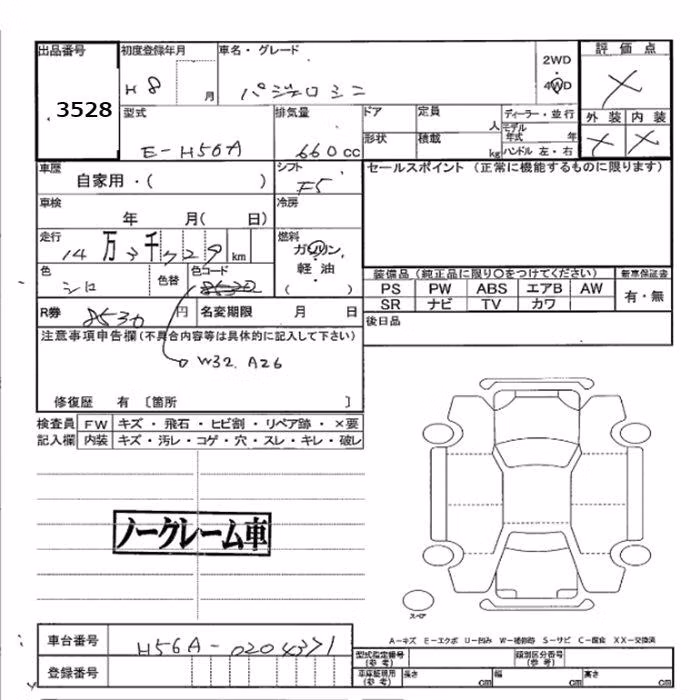 出品番号 初度登録年月 車名・グレード 2WD 評価点
3528 H8 月 パジェロミニ 4WD X
型式 排気量 ドア 定員 人 ディーラー・並行 外装 内装
E-H56A 660cc 形状 積載 kg モデル年式 年 ハンドル 左・右 X X
車歴 自家用・( ) シフト F5 セールスポイント (正常に機能するものに限ります)
車検 年 月( 日) 冷房
走行 14万3千729km 燃料 ガソリン 軽油・( )
色 シロ 色替 色コード 8530
装備品(純正品に限り○をつけてください) 新車保証書
PS PW ABS エアB AW 有・無
SR ナビ TV カワ
R券 8530円 名変期限 月 日 後日品
注意事項申告欄(不具合内容等は具体的に記入して下さい)
W32 A26
修復歴 有 〔箇所 〕
検査員 FW キズ・飛石・ヒビ割・リペア跡・×要
記入欄 内装 キズ・汚レ・コゲ・穴・スレ・キレ・破レ
ノークレーム車
スペア
A-キズ E-エクボ U-凹み W-補修跡 S-サビ C-腐食 XX-交換済
車台番号 H56A-0204371
登録番号
型式指定番号(参考) 類別区分番号(参考)
車庫証明用(参考) 長さ cm 幅 cm 高さ cm